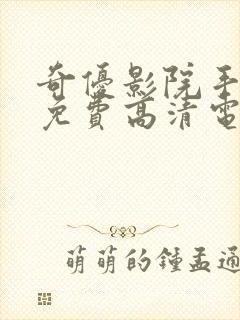 奇優影院手
免費高清電
萌萌的鍾孟通